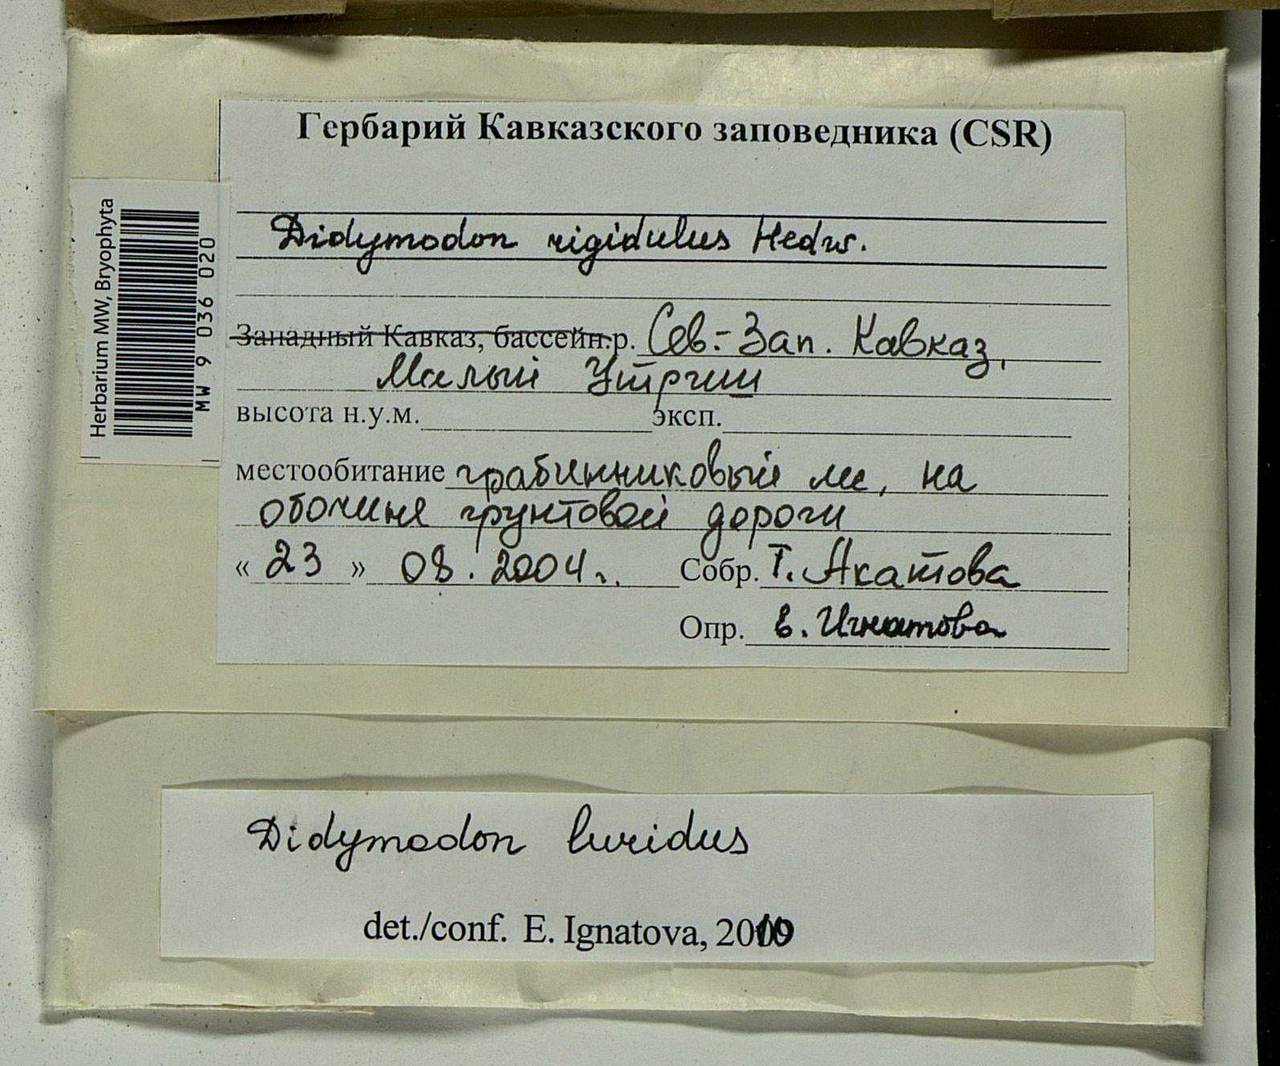 Гербарий Кавказского заповедника (CSR)
Didymodon rigidulus Hedw.
Западный Кавказ, бассейн.р. Сев.-Зап. Кавказ,
Малый Утриш
высота н.у.м. эксп.
местообитание грабинниковый лес, на
обочине грунтовой дороги
« 23 » 08. 2004 г. Собр. Т. Акатова
Опр. Е. Игнатова
Herbarium MW, Bryophyta
MW 9 036 020
Didymodon luridus
det./conf. E. Ignatova, 2010